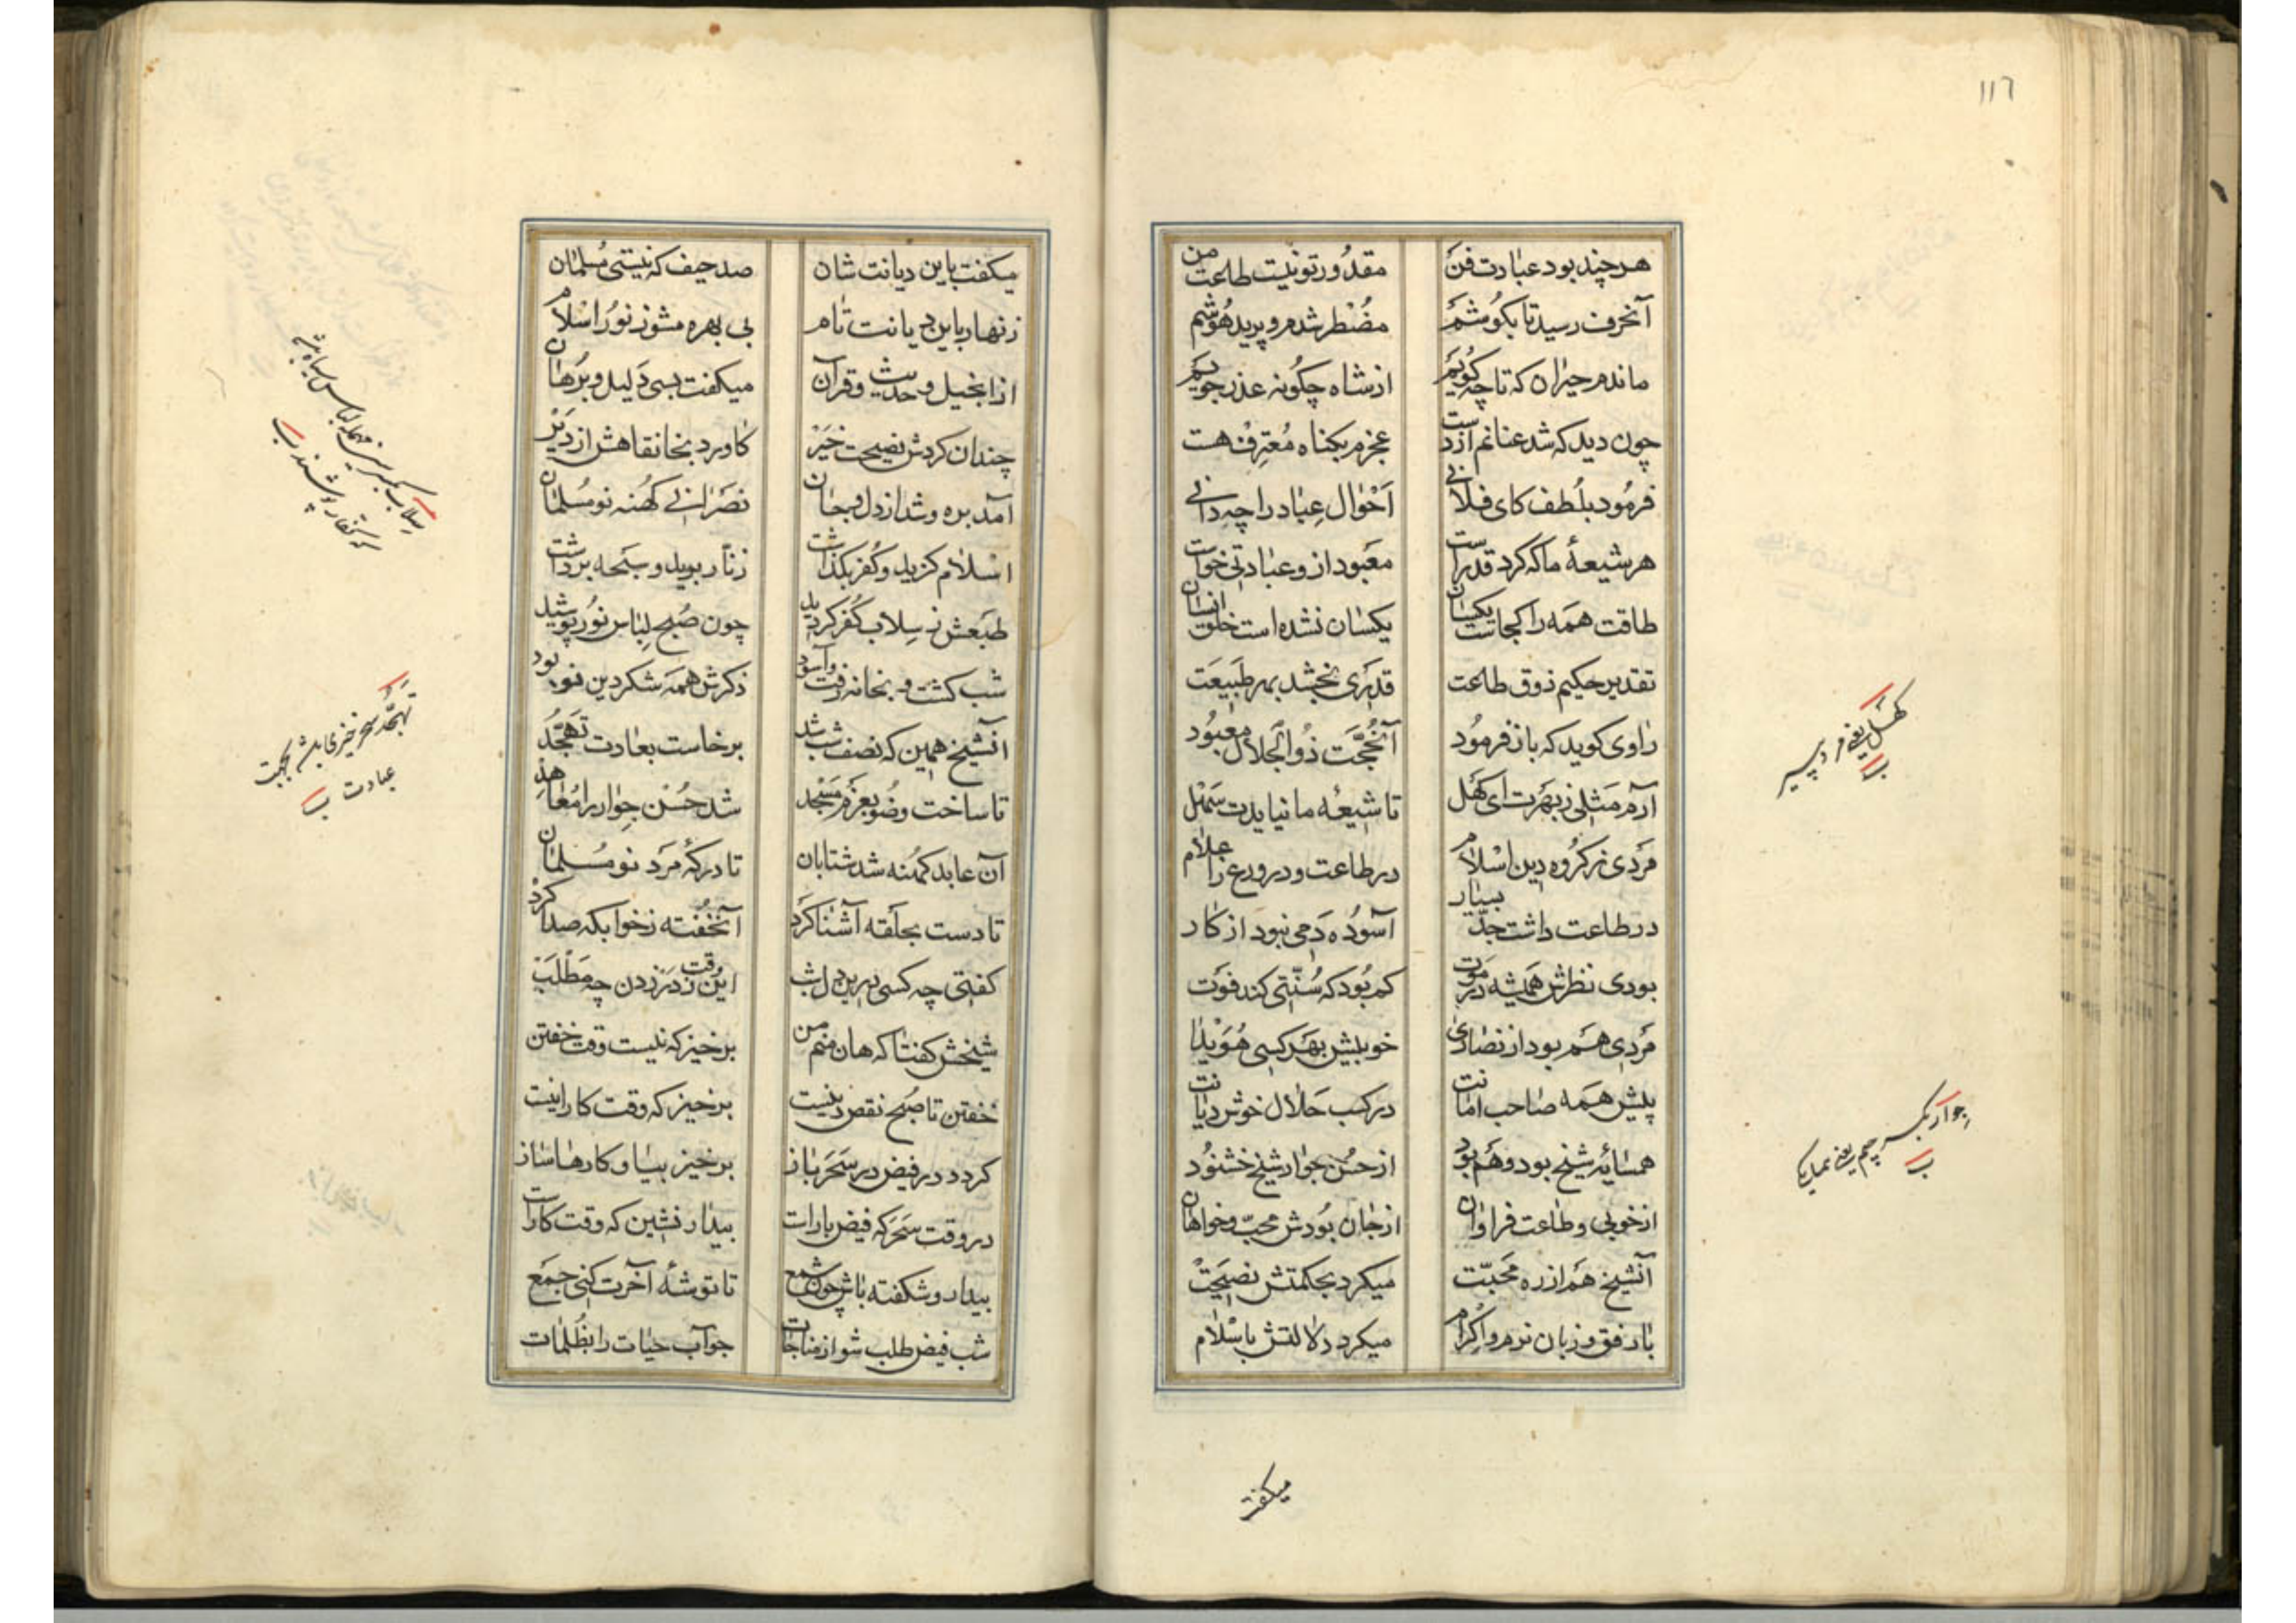 ١١٦
هرچند بود عبادت فن مقدور تو نیست طاعت من
آنحرف رسید تا بکوشم مضطر شدم و پرید هوشم
ماندم حیران که تا چه کویم از شاه چکونه عذر جویم
چون دید که شد عنانم از دست عجزم بکناه معترف هست
فرمود بلطف کای فلانی احوال عباد را چه دانی
هر شیعهٔ ما که کرد قد راست معبود ازو عبادتی خواست
طاقت همه را کجاست یکسان یکسان نشده است خلق انسان
تقدیر حکیم ذوق طاعت قدری بخشد بهر طبیعت
راوی کوید که باز فرمود آنحجّت ذوالجلال معبود
آرم مثلی ز بهرت ای کهل تا شیعهٔ ما نیایدت سهل
مردی ز کروه دین اسلام در طاعت و در ورع علام
در طاعت داشت جدّ بسیار آسوده دمی نبود از کار
بودی نظرش همیشه در موت کم بود که سنّتی کند فوت
مردی هم بود از نصاری خوبیش بهر کسی هویدا
پیش همه صاحب امانت در کسب حلال خوش دیانت
همسایهٔ شیخ بود و هم بود از حسن جوار شیخ خشنود
از خوبی و طاعت فراوان از جان بودش محبّ و خواهان
آنشیخ هم از ره محبّت میکرد بحکمتش نصیحت
با رفق و زبان نرم و اکرام میکرد دلالتش باسلام
کهل یعنی مرد پیر
جوار بکسر جیم یعنی همسایکی
میکفت
میکفت باین دیانت شان صد حیف که نیستی مسلمان
زنهار باین دیانت تام بی بهره مشو ز نور اسلام
از انجیل و حدیث و قرآن میکفت بسی دلیل و برهان
چندان کردش نصیحت خیر کاورد بخانقاهش از دیر
آمد بره و شد از دل و جان نصرانی کهنه نو مسلمان
اسلام کزید و کفر بکذاشت زنّار برید و سبحه برداشت
طبعش ز سلاب کفر کردید چون صبح لباس نور پوشید
شب کشت و بخانه رفت و آسود ذکرش همه شکر دین نو بود
آنشیخ همین که نصف شب شد برخاست بعادت تهجّد
تا ساخت وضو بعزم مسجد شد حسن جوار را معاهذ
آن عابد کهنه شد شتابان تا درکه مرد نو مسلمان
تا دست بحلقه آشنا کرد آنخفته ز خوابکه صدا کرد
کفتی چه کسی درین دل شب این وقت ز در زدن چه مطلب
شیخش کفتا که هان منم من برخیز که نیست وقت خفتن
خفتن تا صبح نقص دینست برخیز که وقت کار اینست
کردد در فیض در سحر باز برخیز بیا و کارها ساز
در وقت سحر که فیض بارات بیدار نشین که وقت کارات
بیدار و شکفته باش چون شمع تا توشهٔ آخرت کنی جمع
شب فیض طلب شو از مناجات جو آب حیات را بظلمات
سلاب بکسر سین مهمله لباس سیاه
تهجّد سحر خیزی باشد بجهت
عبادت